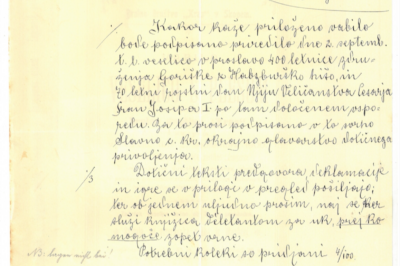 ·/. Kakor kaže priloženo vabilo
bode podpisano priredilo dne 2. septemb.
t. l. veselico v proslavo 400 letnice zdru-
ženja Goriške z Habzburško hišo, in
70 letni rojstni dan Njiju Veličanstva Cesarja
Fran Josipa I po tam določenem vspo-
redu. Za to prosi podpisano v to svrho
Slavno c. kr. okrajno glavarstvo dotičnega
privoljenja.
·/3 Dotični teksti predgovora, deklamacije
in igre se v prilogi v pregled pošiljajo;
ter ob jednem uljudno prosim, naj se ker
služi knjižica diletantom za uk, prej ko
mogoče zopet vrne.
Potrebni koleki so pridjani
NB: